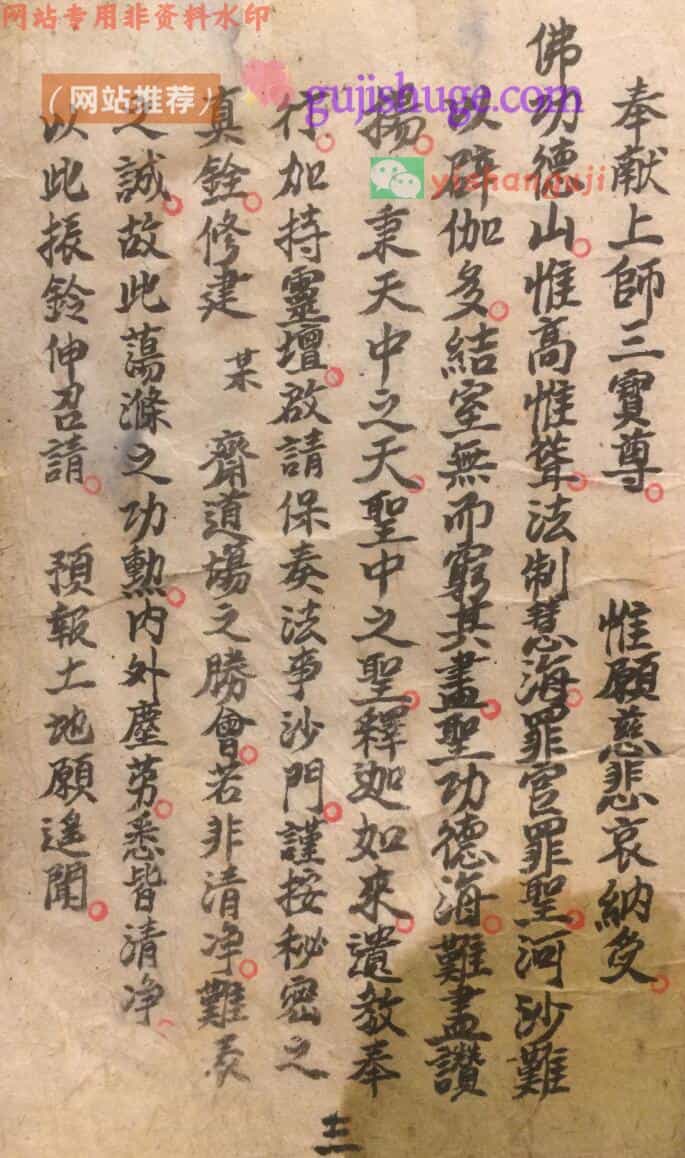 网站专用非资料水印
（网站推荐）
gujishuge.com
yishanguji
奉献上師三寶尊。 惟願慈悲哀納受。
佛功德山。惟高惟聳。法制慧海。罪官罪聖。河沙難
以辟伽多。結室無而窮其盡。聖功德海。難盡讚
揚。 秉天中之天。聖中之聖。釋迦如來。遺教奉
行。加持靈壇。啟請保奏法事沙門。謹按秘密之
真銓。修建 某 齋道場之勝會。若非清净。難表
之誠。故此蕩滌之功勲。内外塵劳。悉皆清净。
以此振鈴伸召請。 預報土地願遙聞。
三